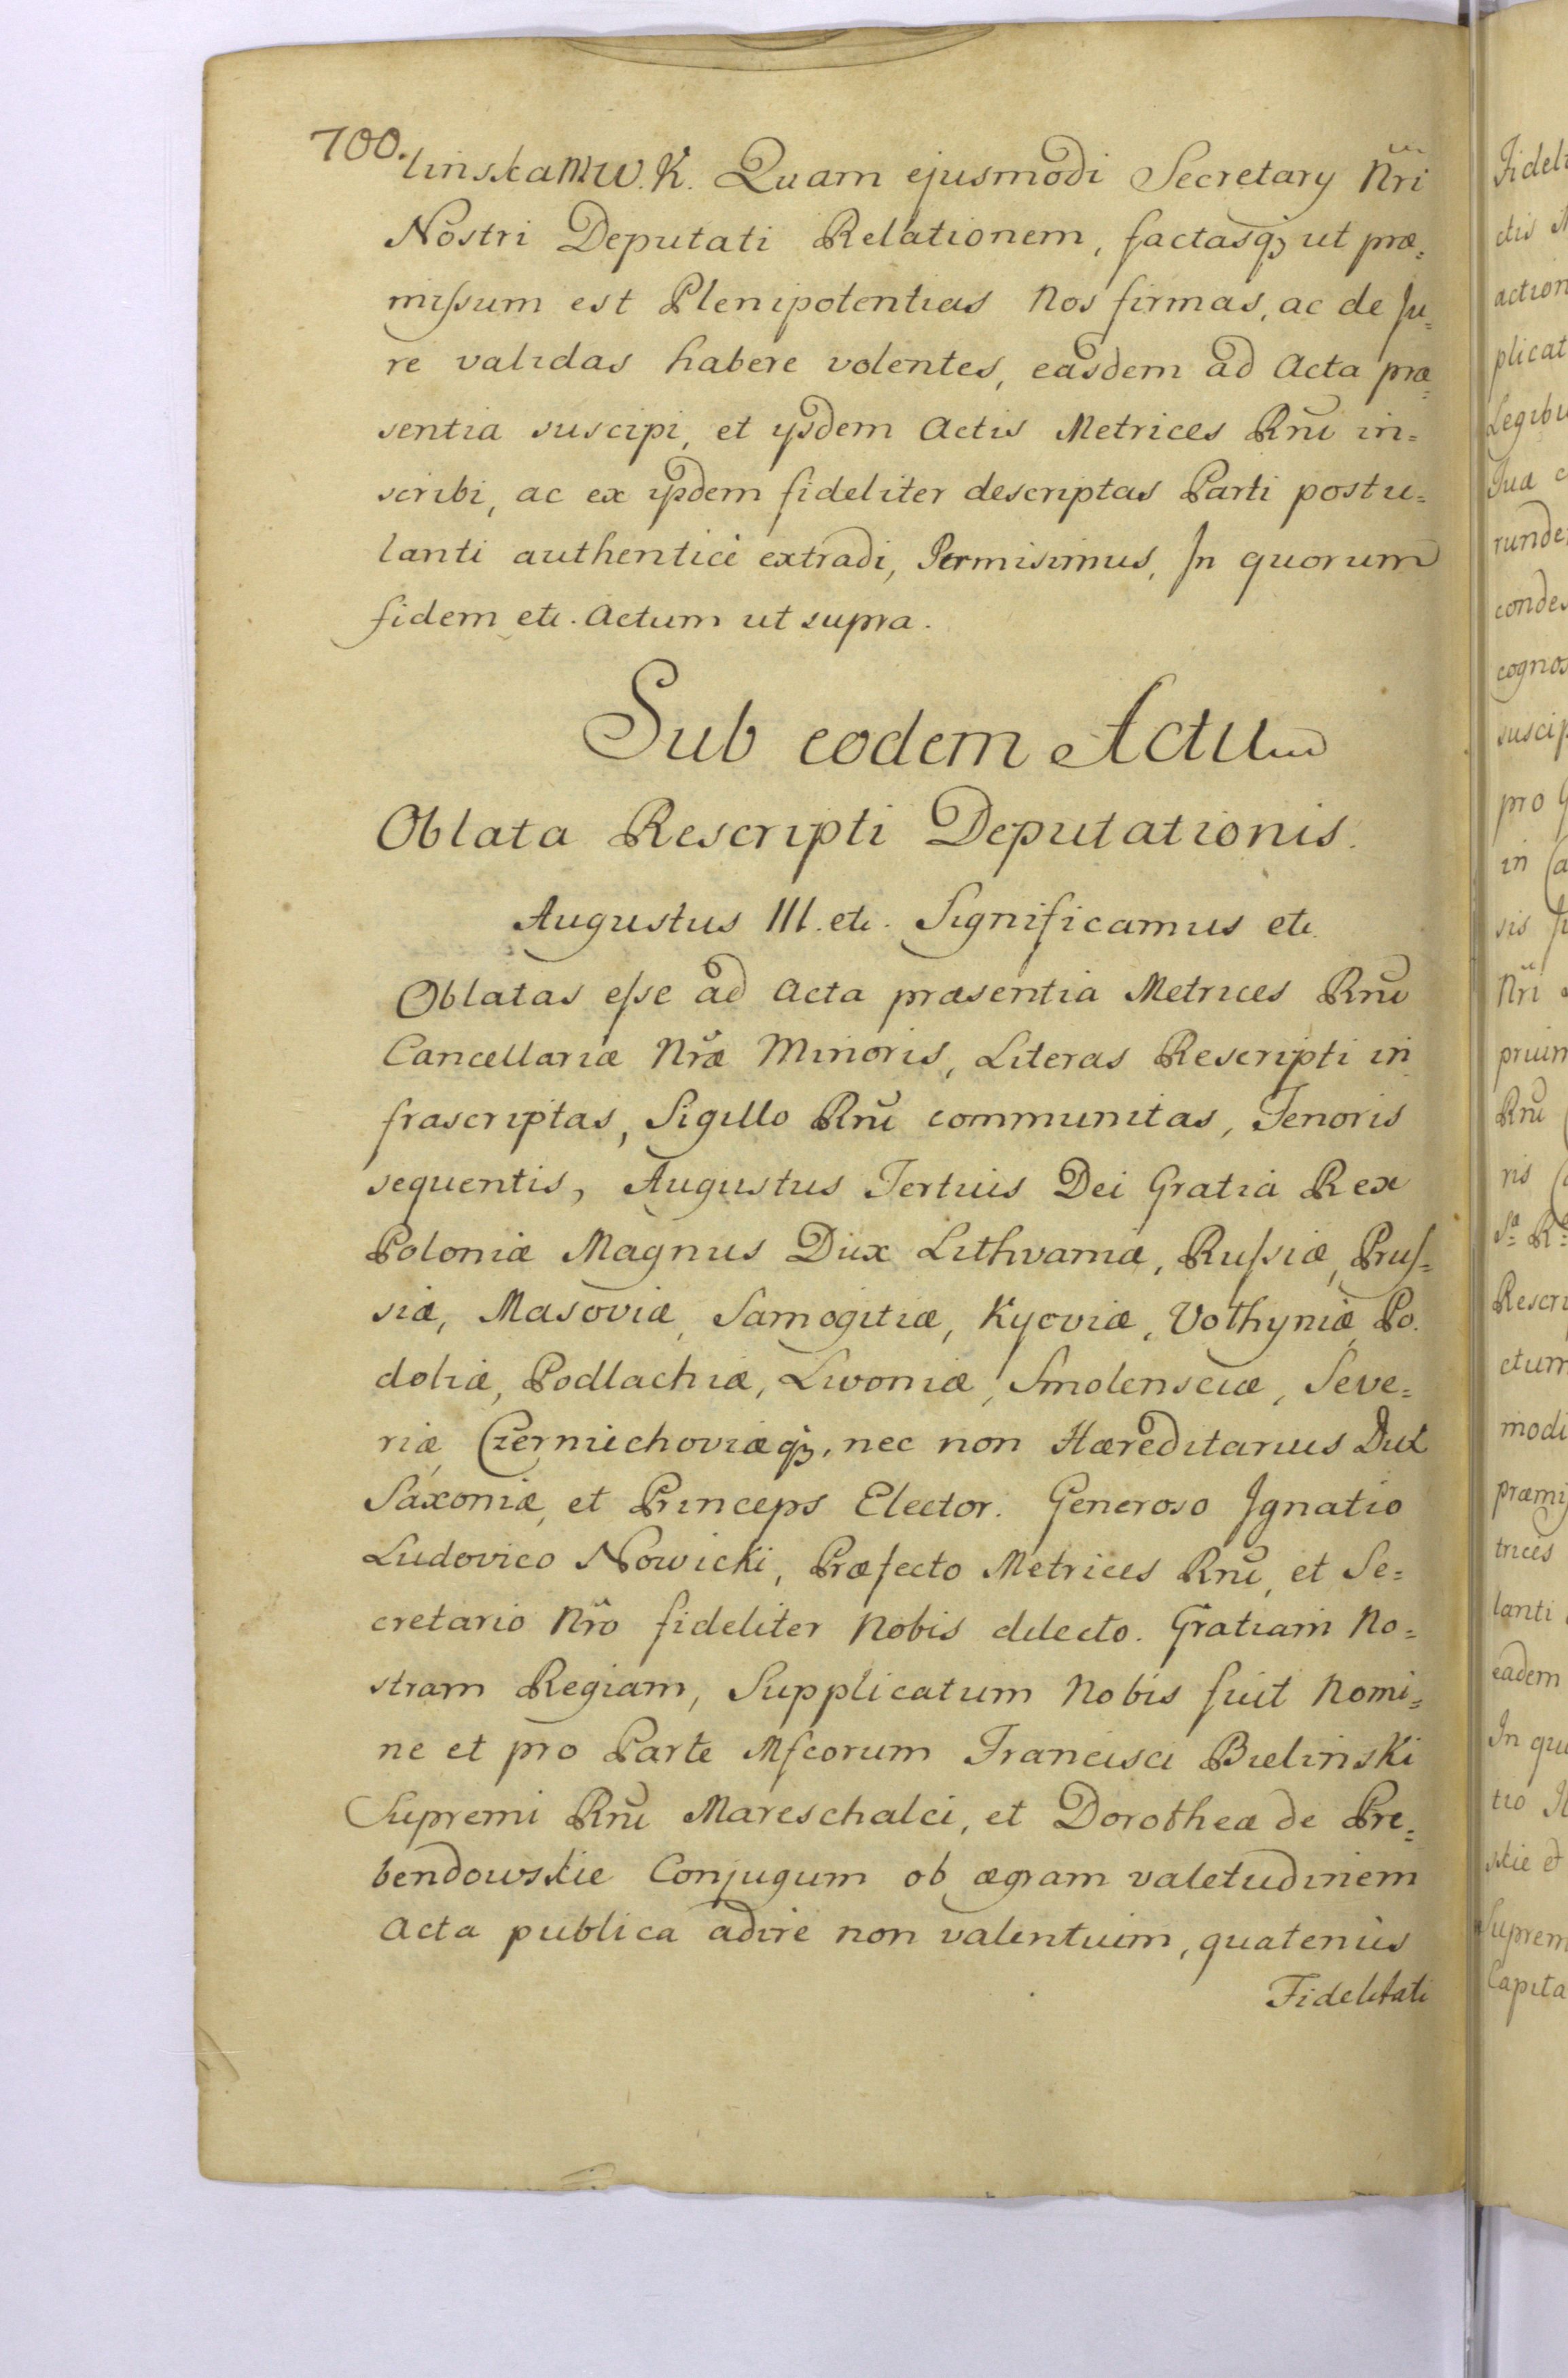 700.
linska M.W.K. Quam ejusmodi Secretarij Nr̃i
Nostri Deputati Relationem, factasq́ꝫ ut præ=
missum est Plenipotentias Nos firmas, ac de Ju=
re validas habere volentes, easdem ad Acta præ=
sentia suscipi, et ijsdem Actis Metrices Rñi in=
scribi, ac ex ijsdem fideliter descriptas Parti postu=
lanti authenticè extradi, Permisimus, In quorum
fidem etc. Actum ut supra.
Sub eodem Actu
Oblata Rescripti Deputationis.
Augustus III. etc. Significamus etc.
Oblatas esse ad Acta præsentia Metrices Rñi
Cancellariæ Nr̃æ Minoris, Literas Rescripti in
frascriptas, Sigillo Rñi communitas, Tenoris
sequentis, Augustus Tertius Dei Gratiâ Rex
Poloniæ Magnus Dux Lithvaniæ, Russiæ, Prus=
siæ, Masoviæ, Samogitiæ, Kyoviæ, Volhyniæ, Po.
doliæ, Podlachiæ, Livoniæ, Smolensciæ, Seve=
riæ, Czerniechoviæq́ꝫ, nec non Hæreditarius Dux
Saxoniæ, et Princeps Elector. Generoso Ignatio
Ludovico Nowicki, Præfecto Metrices Rñi, et Se=
cretario Nr̃o fideliter Nobis dilecto. Gratiam No=
stram Regiam, Supplicatum Nobis fuit Nomi=
ne et pro Parte Mfcorum Francisci Bielinski
Supremi Rñi Mareschalci, et Dorotheæ de Pre=
bendowskie Conjugum ob ægram valetudinem
Acta publica adire non valentium, quatenùs
Fidelitati